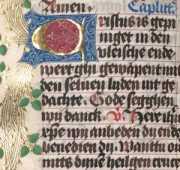 Amen. Capitt.
ristus is ghep
ninger in den
vleische ende
weer ghi gewapent mit
den seluen sinden uut ge
dachte. Gode segghen
wi danck. V. Here ihu
xpe wi anbeden di ende
benedien di. Wantu ou
mits dyne heilgen cruce